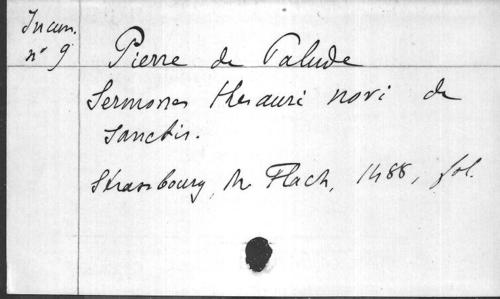 Incun.
n° 9
Pierre de Palude
Sermones thesauri novi de
sanctis.
Strasbourg, M. Flach, 1488, fol.